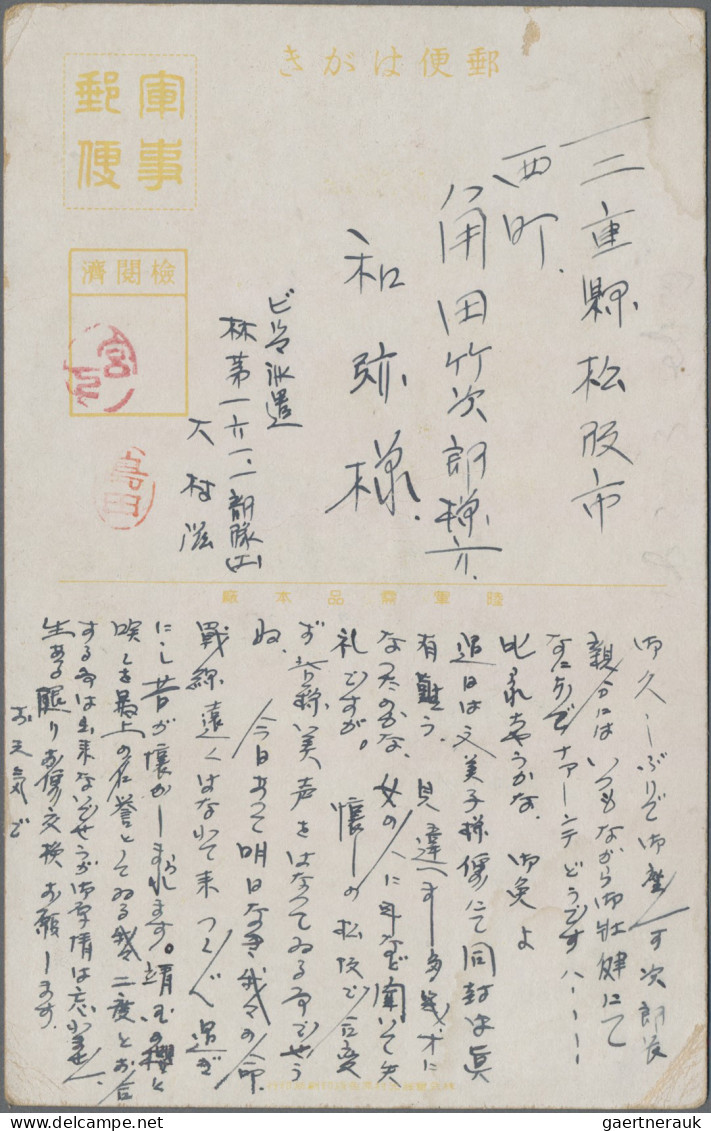 郵便はがき
軍事
郵便
檢閲濟
三重縣松阪市
西町
角田竹次郎様方
和弥様
ビルマ派遣
林第一六一二部隊(工)
大村滋
陸軍需品本廠
御久しぶりで御座います次郎長
親分にはいつもながら御壮健にて
なにあでナァーンテどうですハーーー
御免よ
過日は文美子様の便にて同封は眞
有難う。見違へます多分幾才に
なつたのかな、女の人に年など聞いて失
礼ですが。懐しの松阪で相変
ず美声をはなつてゐる事でせう
ね、今日あつて明日なき我々の命
戰線遠くはなれて来つくづく過ぎ
にし昔が懐かしまれます。靖国の櫻と
咲くを最上の名誉としてゐる我々二度とお合
する事は出来ないでせうが御厚情は忘れません
生ある限りお便交換お願します。
お天気で
gaertnerauk
www.delcampe.net